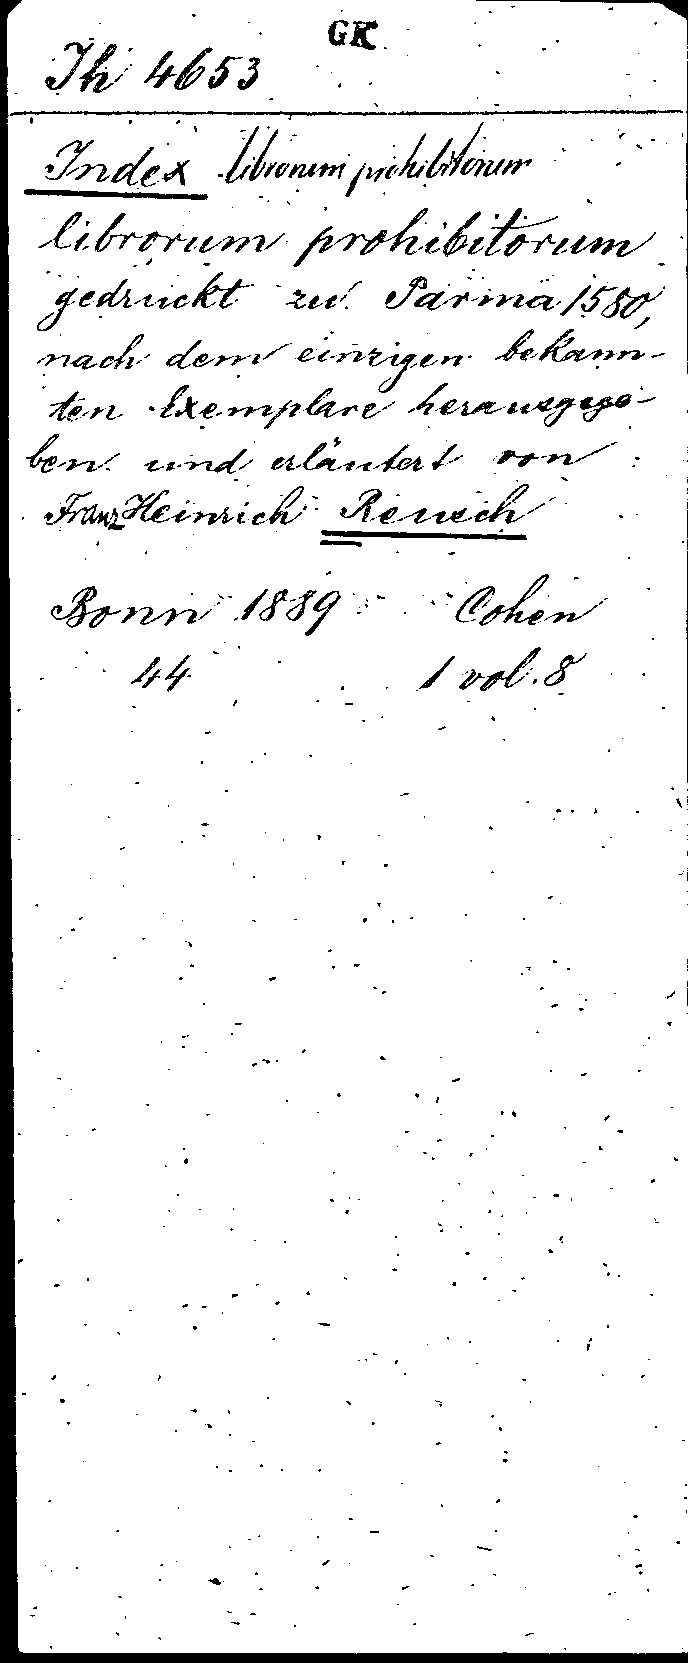 GK
Th 4653
Index librorum prohibitorum
librorum prohibitorum
gedruckt zu Parma 1580,
nach dem einzigen bekann-
ten Exemplare herausgege-
ben und erläutert von
Franz Heinrich Reusch
Bonn 1889 Cohen
44 1 vol. 8